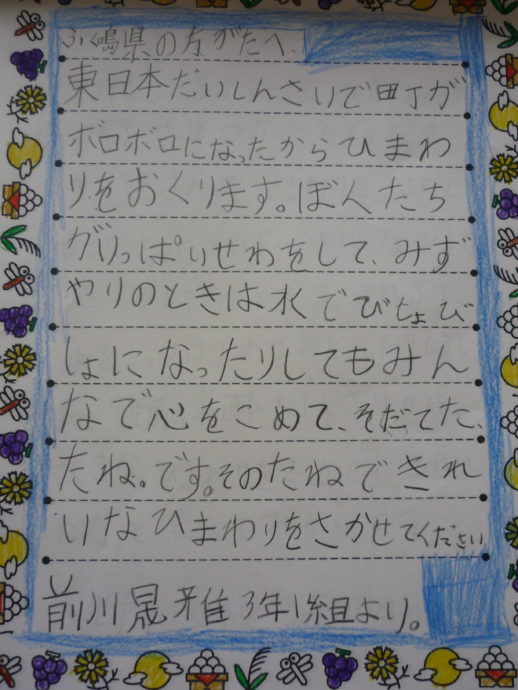 ふく嶋県の方がたへ、
東日本だいしんさいで町が
ボロボロになったからひまわ
りをおくります。ぼんたち
がいっぱいせわをして、みず
やりのときは水でびちょび
しょになったりしてもみん
なで心をこめて、そだてた、
たね。です。そのたねできれ
いなひまわりをさかせてください
前川晃雅3年1組より。